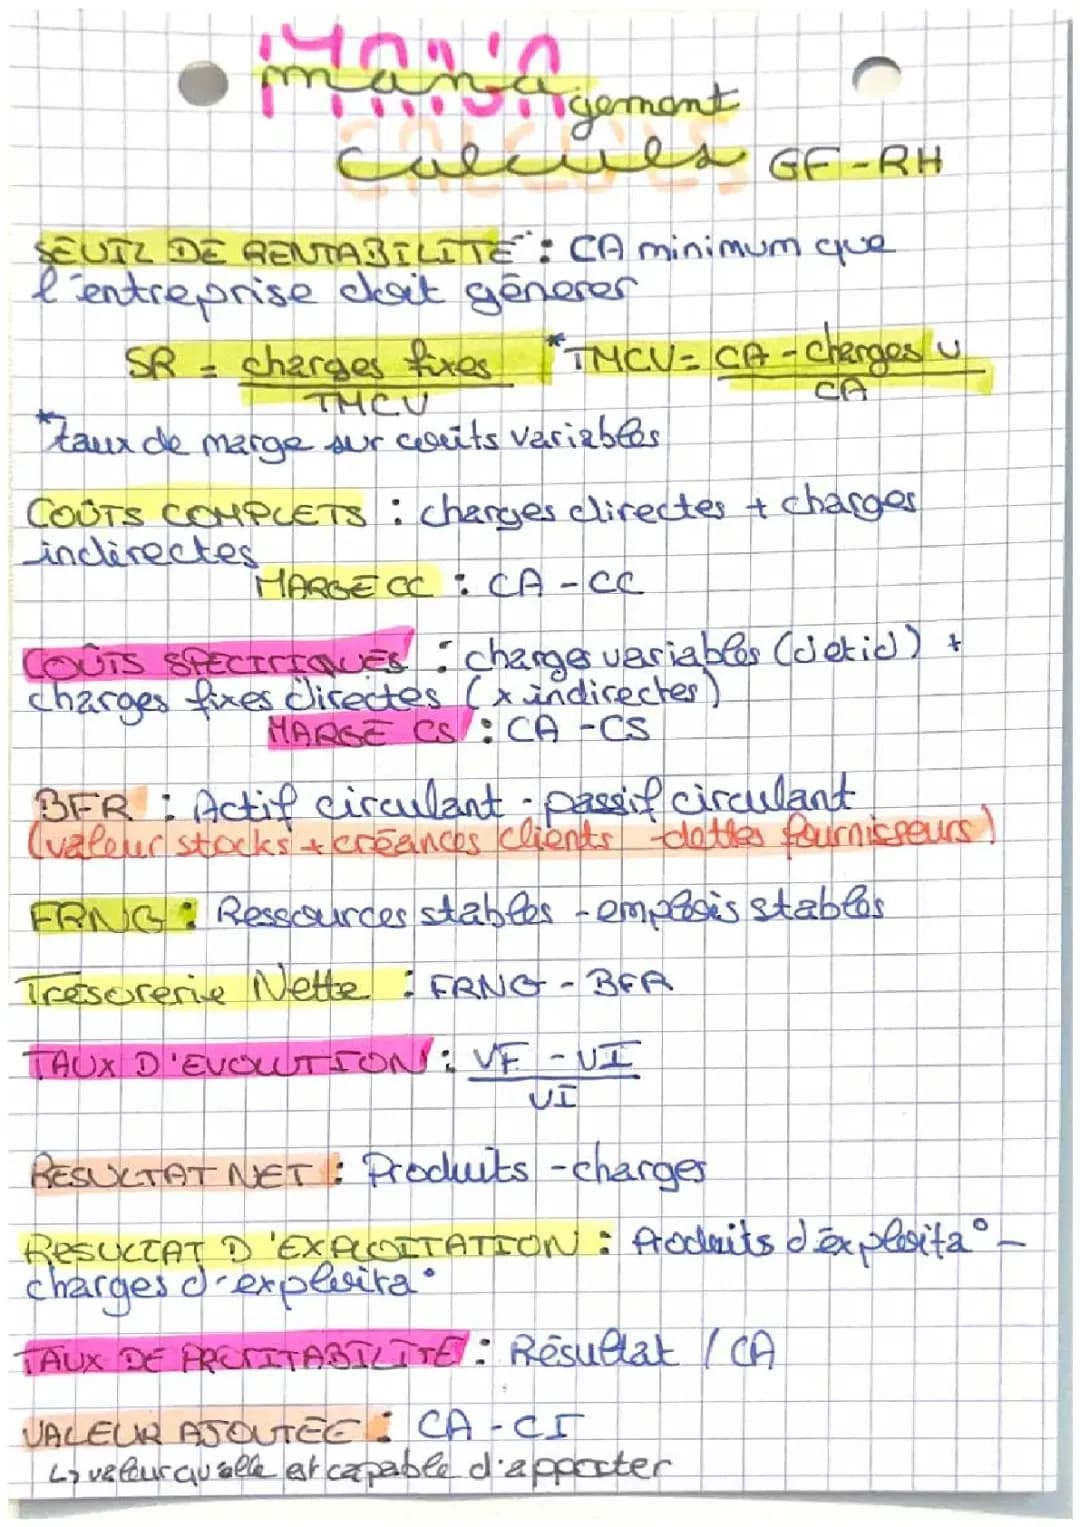 management
calculs GF-RH
SEUIL DE RENTABILITE : CA minimum que
l'entreprise doit générer
SR = charges fixes / TMCU *TMCU = CA - charges U / CA
*taux de marge sur coûts variables
COÛTS COMPLETS : charges directes + charges
indirectes
MARGE CC : CA - CC
COÛTS SPECIFIQUES : charges variables (d et id) +
charges fixes directes (x indirectes)
MARGE CS : CA - CS
BFR : Actif circulant - passif circulant
(valeur stocks + créances clients - dettes fournisseurs)
FRNG : Ressources stables - emplois stables
Trésorerie Nette : FRNG - BFR
TAUX D'EVOLUTION : VF - VI
VI
RESULTAT NET : Produits - charges
RESULTAT D'EXPLOITATION : Produits d'exploita° -
charges d'exploita°
TAUX DE PROFITABILITE : Résultat / CA
VALEUR AJOUTÉE : CA - CI
↳ valeur qu'elle est capable d'apporter